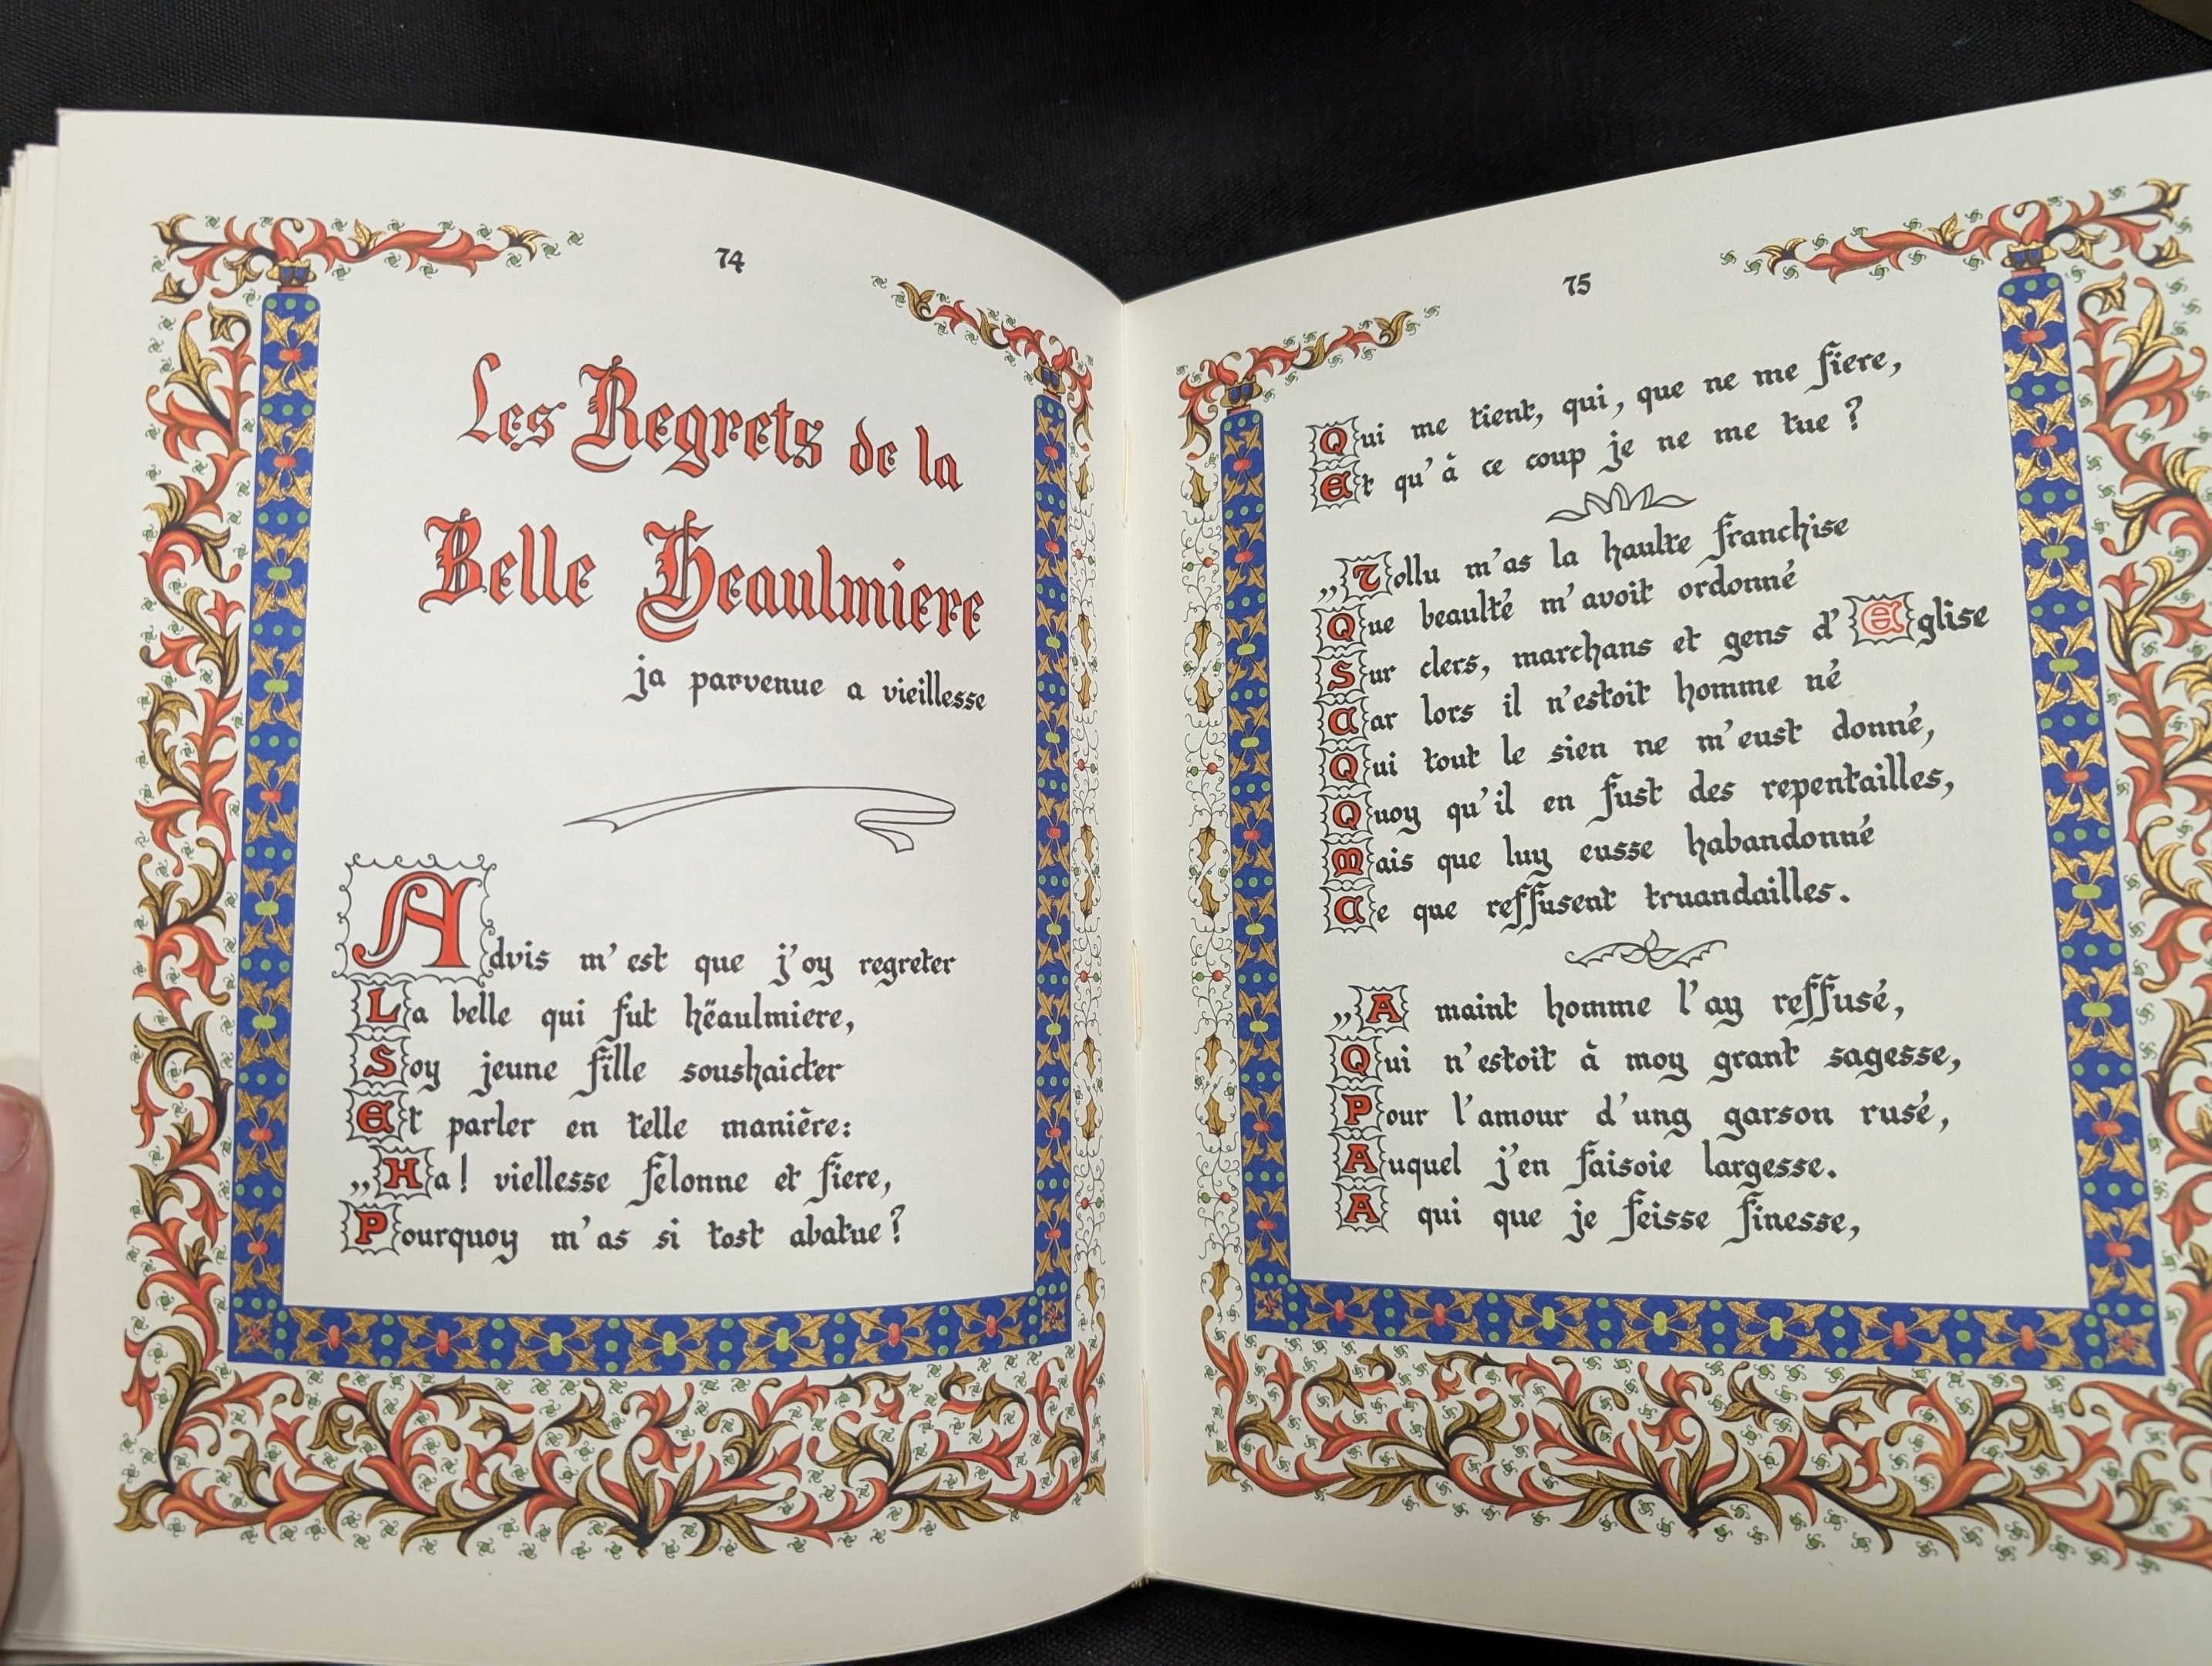 74
Les Regrets de la
Belle Heaulmiere
ja parvenue a vieillesse
Advis m'est que j'oy regreter
La belle qui fut hëaulmiere,
Soy jeune fille soushaicter
Et parler en telle manière:
„Ha! viellesse felonne et fiere,
Pourquoy m'as si tost abatue?
75
Qui me tient, qui, que ne me fiere,
Et qu'à ce coup je ne me tue?
„Tollu m'as la haulte franchise
Que beaulté m'avoit ordonné
Sur clers, marchans et gens d'Eglise
Car lors il n'estoit homme né
Qui tout le sien ne m'eust donné,
Quoy qu'il en fust des repentailles,
Mais que luy eusse habandonné
Ce que reffusent truandailles.
„A maint homme l'ay reffusé,
Qui n'estoit à moy grant sagesse,
Pour l'amour d'ung garson rusé,
Auquel j'en faisoie largesse.
A qui que je feisse finesse,